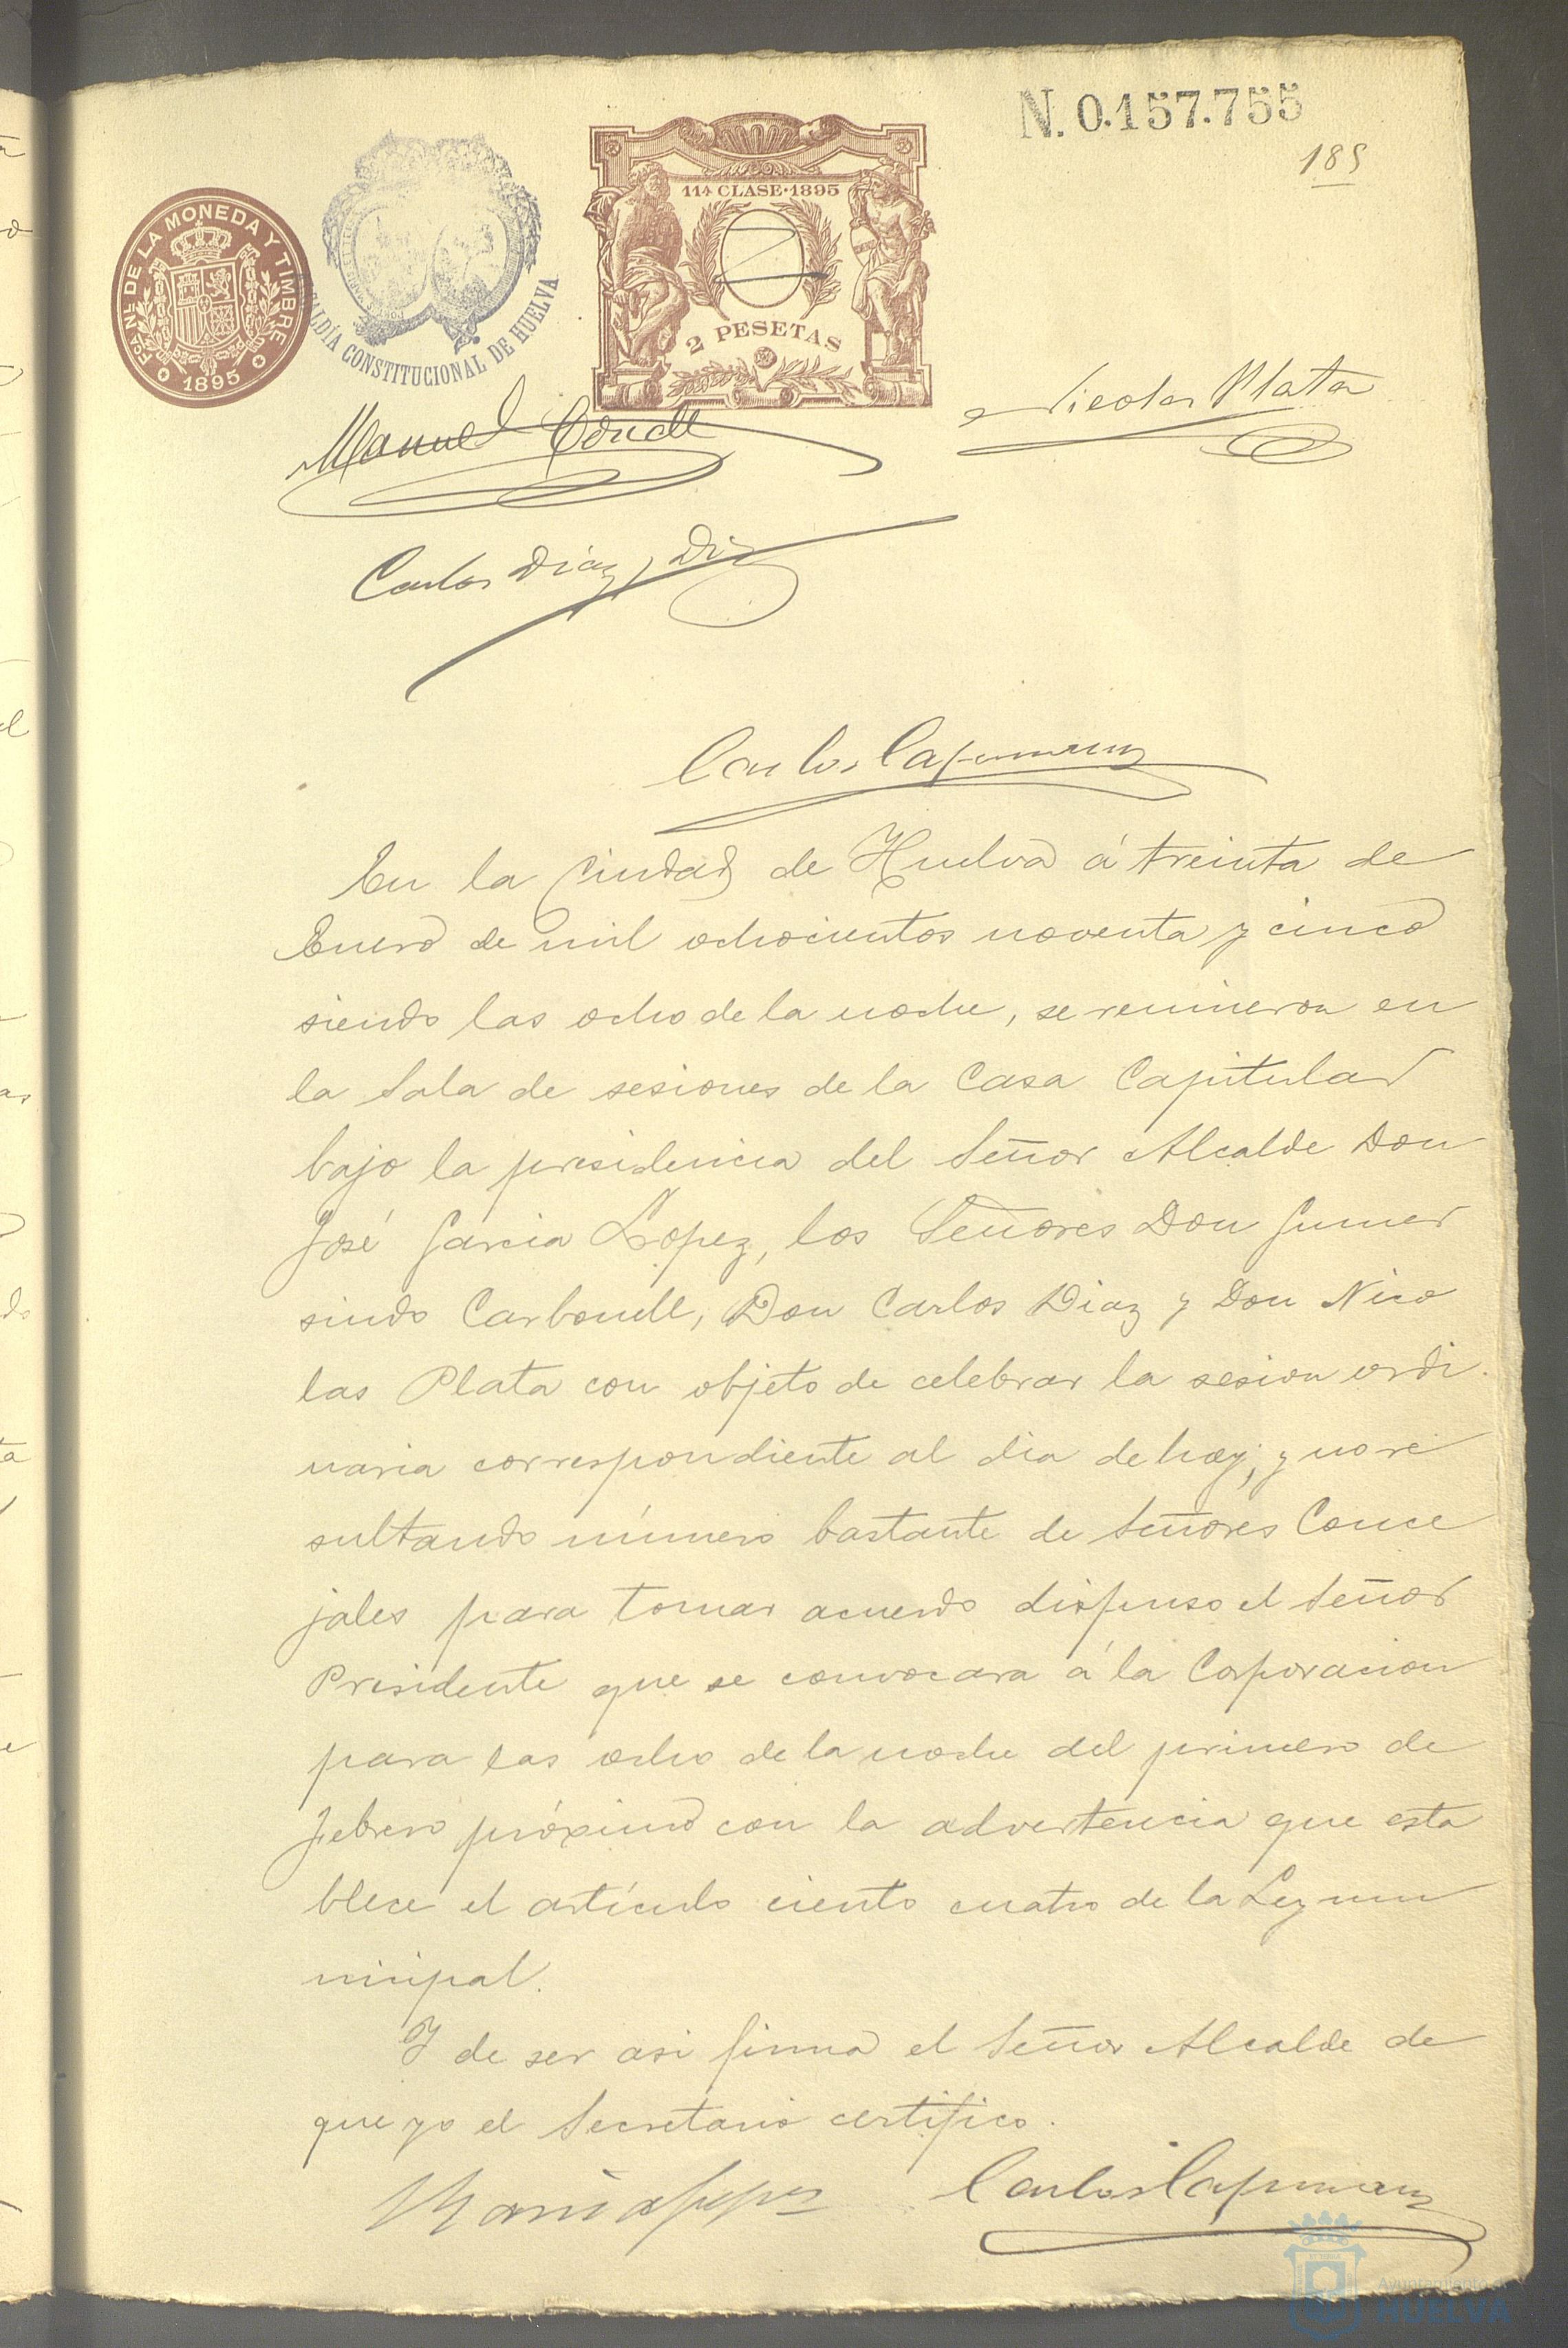 N. 0.157.755
185
FCA. NL. DE LA MONEDA Y TIMBRE
1895
ALCALDÍA CONSTITUCIONAL DE HUELVA
11ª CLASE·1895
2 PESETAS
Nicolas Plata
Manuel Conde
Carlos Díaz y Diz
Carlos Capmany
En la Ciudad de Huelva á treinta de
Enero de mil ochocientos noventa y cinco
siendo las ocho de la noche, se reunieron en
la Sala de sesiones de la Casa Capitular
bajo la presidencia del Señor Alcalde Don
José Garcia Lopez, los Señores Don Gumer
sindo Carbonell, Don Carlos Diaz y Don Nico
las Plata con objeto de celebrar la sesion ordi
naria correspondiente al dia de hoy; y no re
sultando número bastante de Señores Conce
jales para tomar acuerdo dispuso el Señor
Presidente que se convocara á la Corporacion
para las ocho de la noche del primero de
febrero próximo con la advertencia que esta
blece el artículo ciento cuatro de la Ley mu
nicipal.
Y de ser asi firma el Señor Alcalde de
que yo el Secretario certifico.
Carlos Capmany
Ayuntamiento
HUELVA